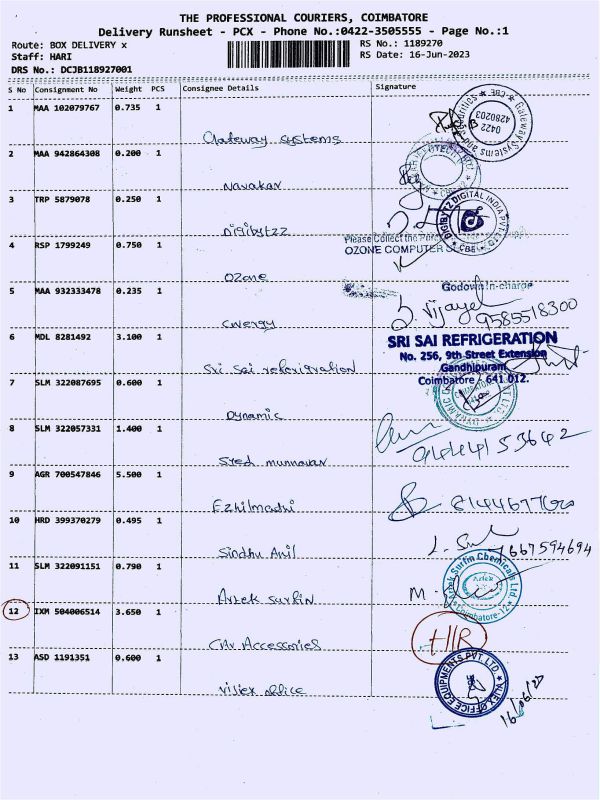 THE PROFESSIONAL COURIERS, COIMBATORE
Delivery Runsheet - PCX - Phone No.:0422-3505555 - Page No.:1
Route: BOX DELIVERY x RS No.: 1189270
Staff: HARI RS Date: 16-Jun-2023
DRS No.: DCJB118927001
S No Consignment No Weight PCS Consignee Details Signature
1 MAA 102079767 0.735 1
Gateway systems
Gateway Systems and Securities CBE 0422 4280203
2 MAA 942864308 0.200 1
Navakar
3 TRP 5879078 0.250 1
Digibytzz
DIGIBYTZ DIGITAL INDIA PVT LTD CBE
4 RSP 1799249 0.750 1
Please Collect the
OZONE COMPUTER
Ozone
5 MAA 932333478 0.235 1
Godown in-charge
S. Vijayel
9585518300
Cwergy
6 MDL 8281492 3.100 1
SRI SAI REFRIGERATION
No. 256, 9th Street Extension
Gandhipuram
Coimbatore - 641 012.
Sri Sai refrigration
7 SLM 322087695 0.600 1
Dynamic
8 SLM 322057331 1.400 1
Syed munnavar
9 AGR 700547846 5.500 1
Ezhilmadhi
10 HRD 399370279 0.495 1
Sindhu Anil
7667594694
11 SLM 322091151 0.790 1
Artek Surfin
Artek Surfin Chemicals Ltd. Artek Coimbatore-12
12 IXM 504006514 3.650 1
Car Accessories
HR
13 ASD 1191351 0.600 1
Viljex office
VILJEX OFFICE EQUIPMENTS PVT. LTD.
16/06/23